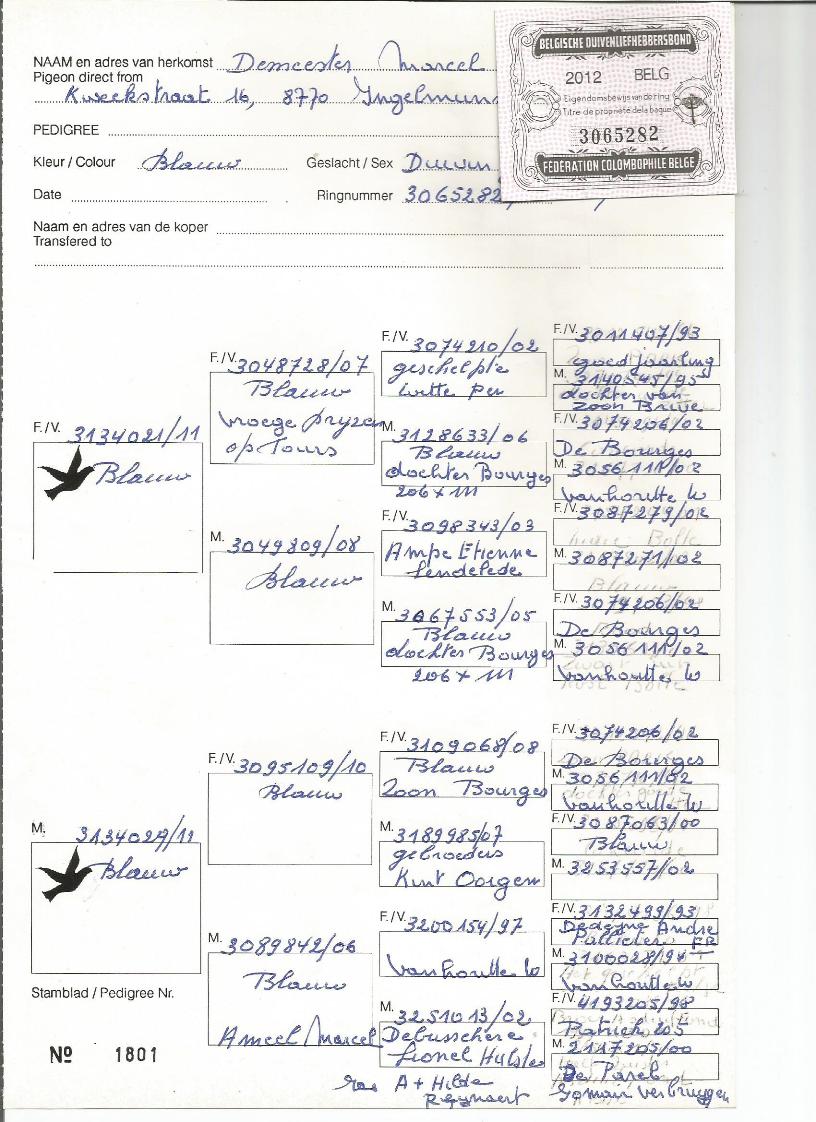 NAAM en adres van herkomst Demeester Marcel
Pigeon direct from
Kweekstraat 16, 8770 Ingelmuns
PEDIGREE
Kleur / Colour Blauw Geslacht / Sex Duivin
Date Ringnummer 3065282
Naam en adres van de koper
Transfered to
BELGISCHE DUIVENLIEFHEBBERSBOND
2012 BELG
Eigendomsbewijs van de ring
Titre de propriété de la bague
3065282
FEDERATION COLOMBOPHILE BELGE
F./V. 3134021/11
Blauw
F./V. 3048728/07
Blauw
vroege pryzen
op Tours
M. 3049809/08
Blauw
F./V. 3074210/02
geschelpte
witte pen
M. 3128633/06
Blauw
dochter Bourges
206 x 111
F./V. 3098343/03
Ampe Etienne
Lendelede
M. 3067553/05
Blauw
dochter Bourges
206 x 111
F./V. 3011407/93
goed jaarling
M. 3140545/95
dochter van
zoon
F./V. 3074206/02
De Bourges
M. 3056111/02
Vanhoutte W
F./V. 3087279/02
M. 3087271/02
F./V. 3074206/02
De Bourges
M. 3056111/02
Vanhoutte W
M. 3134027/11
Blauw
F./V. 3095109/10
Blauw
M. 3089842/06
Blauw
Ameel Marcel
F./V. 3109068/08
Blauw
Zoon Bourges
M. 3189985/07
gebroeders
Kurt Oorgem
F./V. 3200154/97
Vanhoutte W
M. 3251013/02
Debusschere
Lionel Hulste
A + Hilde
Reynaert
F./V. 3074206/02
De Bourges
M. 3056111/02
Vanhoutte W
F./V. 3087063/00
Blauw
M. 3253557/02
F./V. 3132499/93
Dedeyne André
Pollieter FR
M. 3100028/94
Vanhoutte W
F./V. 4193205/98
Patrick 205
M. 2117205/00
De Parel
Gomair Verbruggen
Stamblad / Pedigree Nr.
Nº 1801